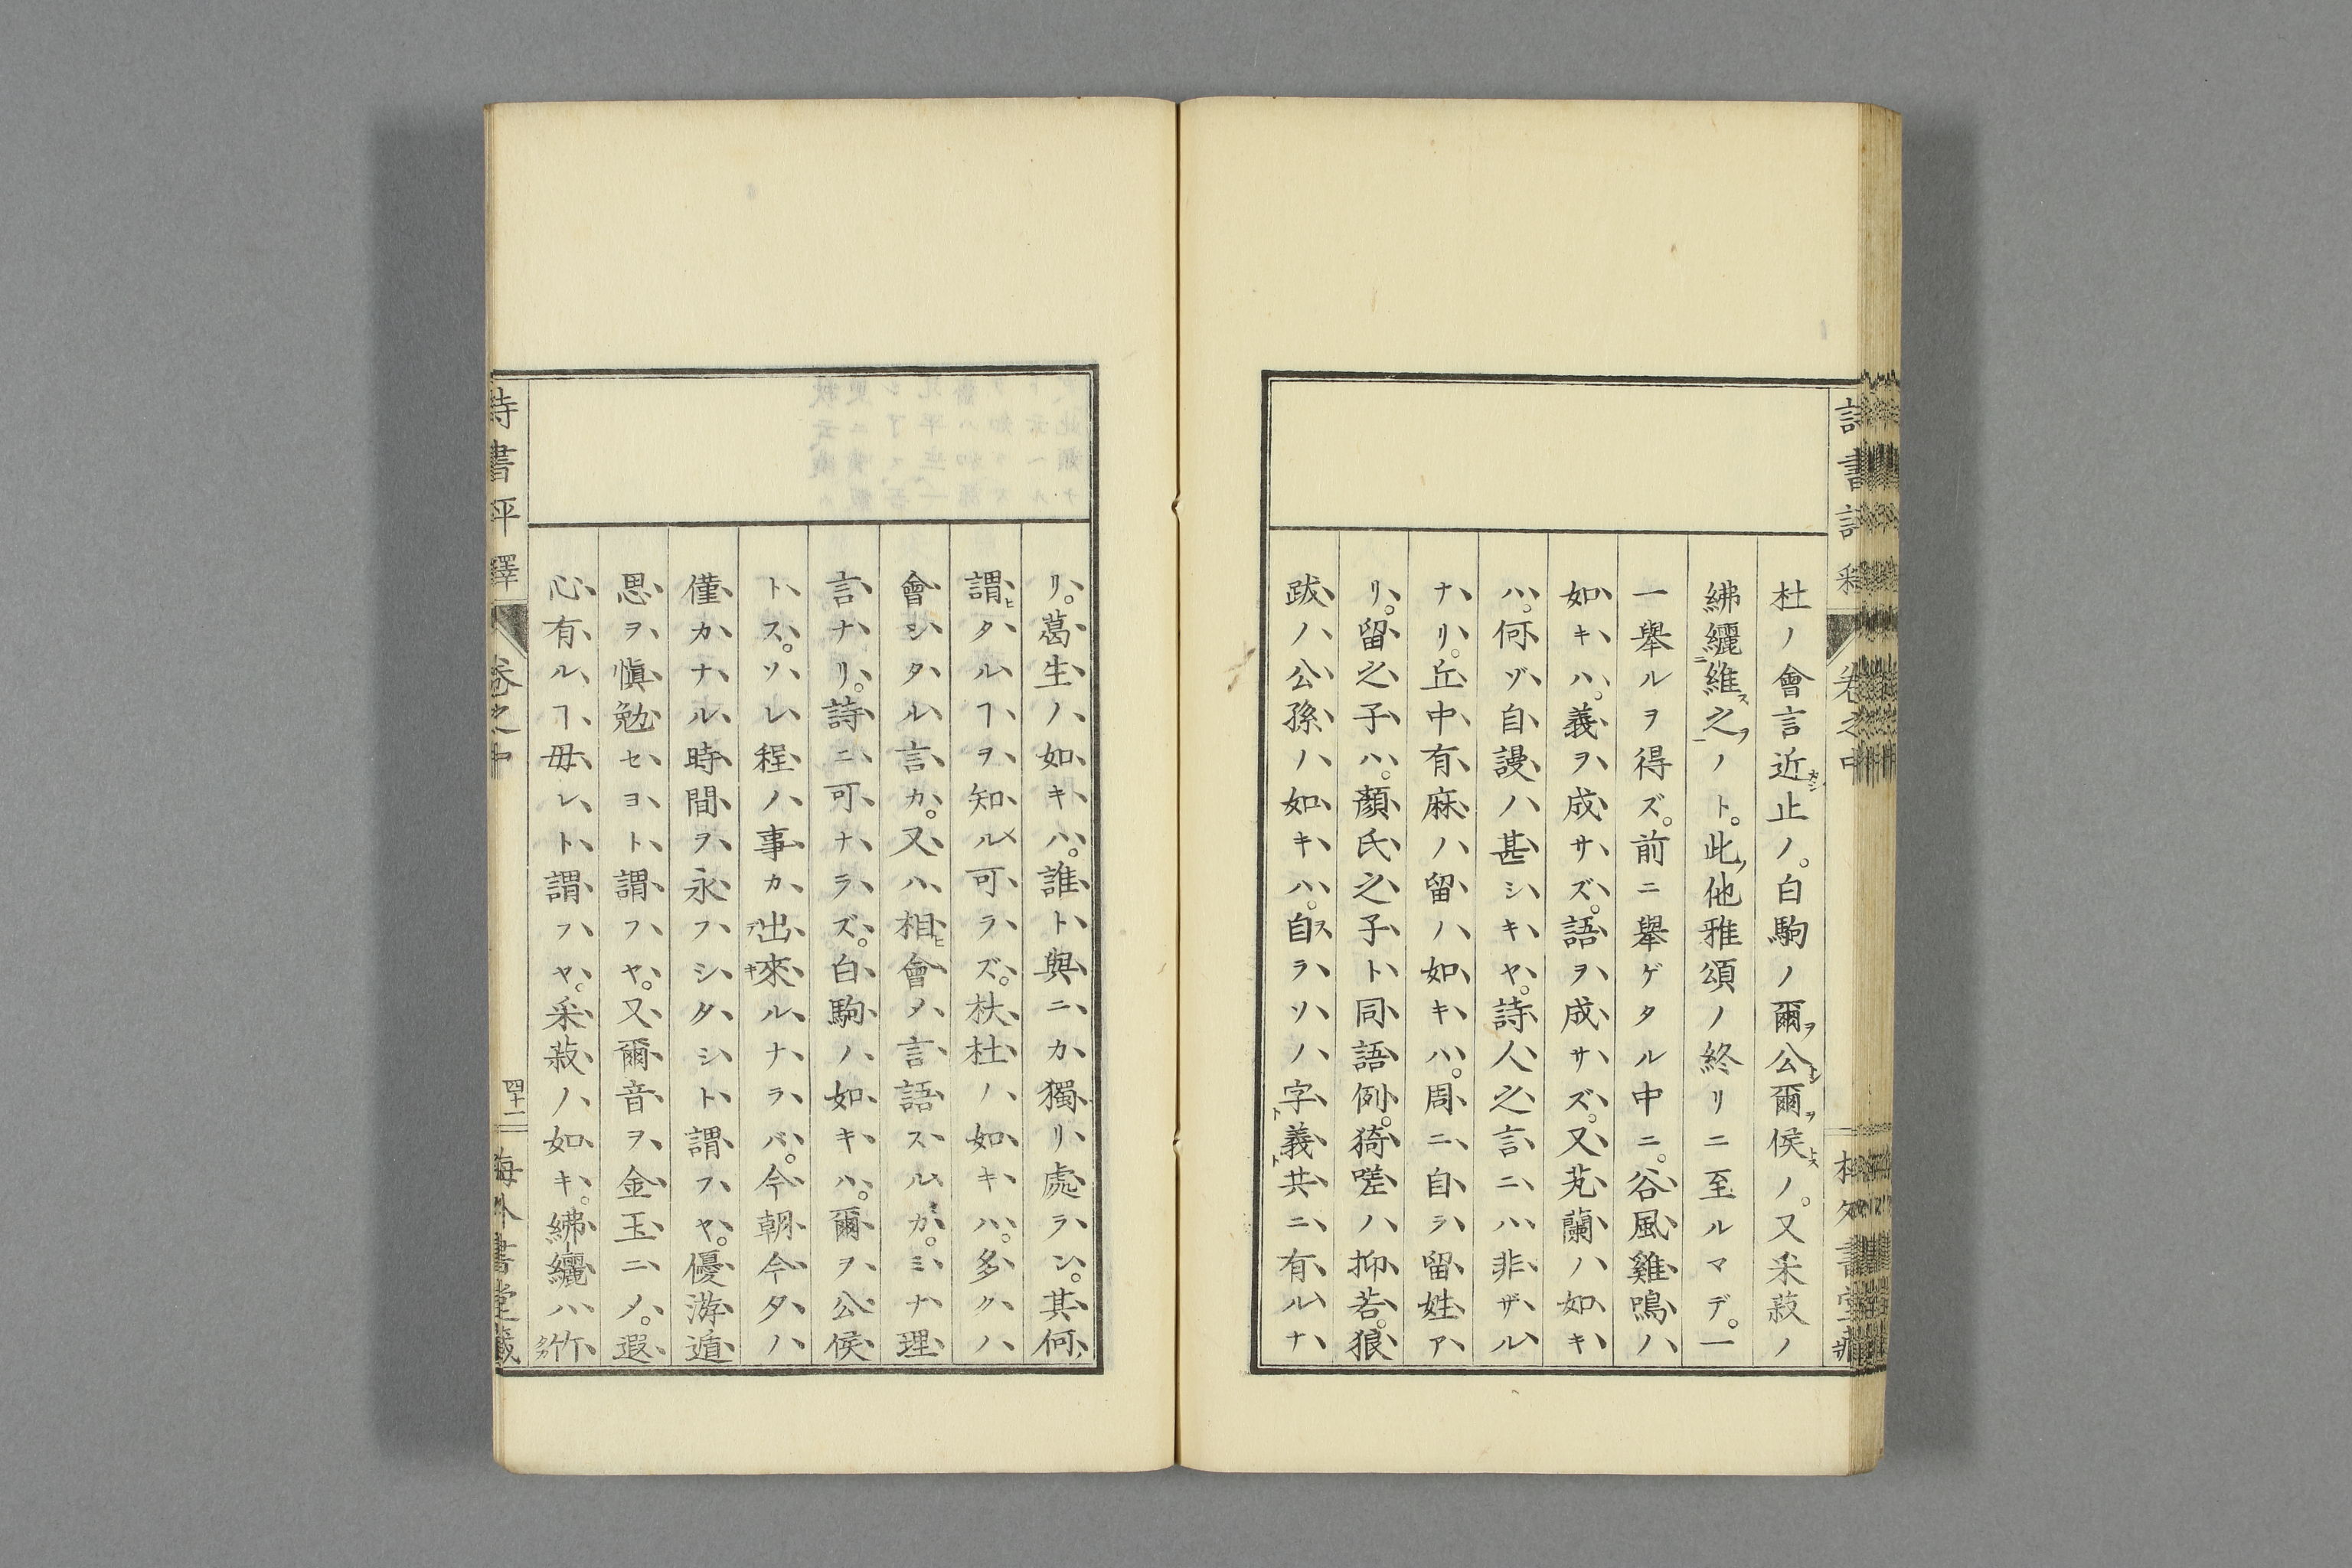 杜ノ會言近止ノ。白駒ノ爾公爾侯ノ。又采菽ノ
紼纚維之ノト。此他雅頌ノ終リニ至ルマデ。一
一舉ルヲ得ズ。前ニ舉ゲタル中ニ。谷風雞鳴ノ
如キハ。義ヲ成サズ。語ヲ成サズ。又芄蘭ノ如キ
ハ。何ゾ自謾ノ甚シキヤ。詩人之言ニハ非ザル
ナリ。丘中有麻ノ留ノ如キハ。周ニ自ラ留姓ア
リ。留之子ハ。顏氏之子ト同語例。猗嗟ノ抑若。狼
跋ノ公孫ノ如キハ。自ラソノ字義共ニ有ルナ
リ。葛生ノ如キハ。誰ト與ニカ獨リ處ラン。其何
謂タルヿヲ知ル可ラズ。杕杜ノ如キハ。多クハ
會シタル言カ。又ハ相會メ言語スルカ。ミナ理
言ナリ。詩ニ可ナラズ。白駒ノ如キハ。爾ヲ公侯
トス。ソレ程ノ事カ出來ルナラバ。今朝今夕ノ
僅カナル時間ヲ永フシタシト謂フヤ。優游遁
思ヲ愼勉セヨト謂フヤ。又爾音ヲ金玉ニメ。遐
心有ルヿ毋レト謂フヤ。采菽ノ如キ。紼纚ハ竹
詩書評釋 卷之中 四十二 海外書堂藏